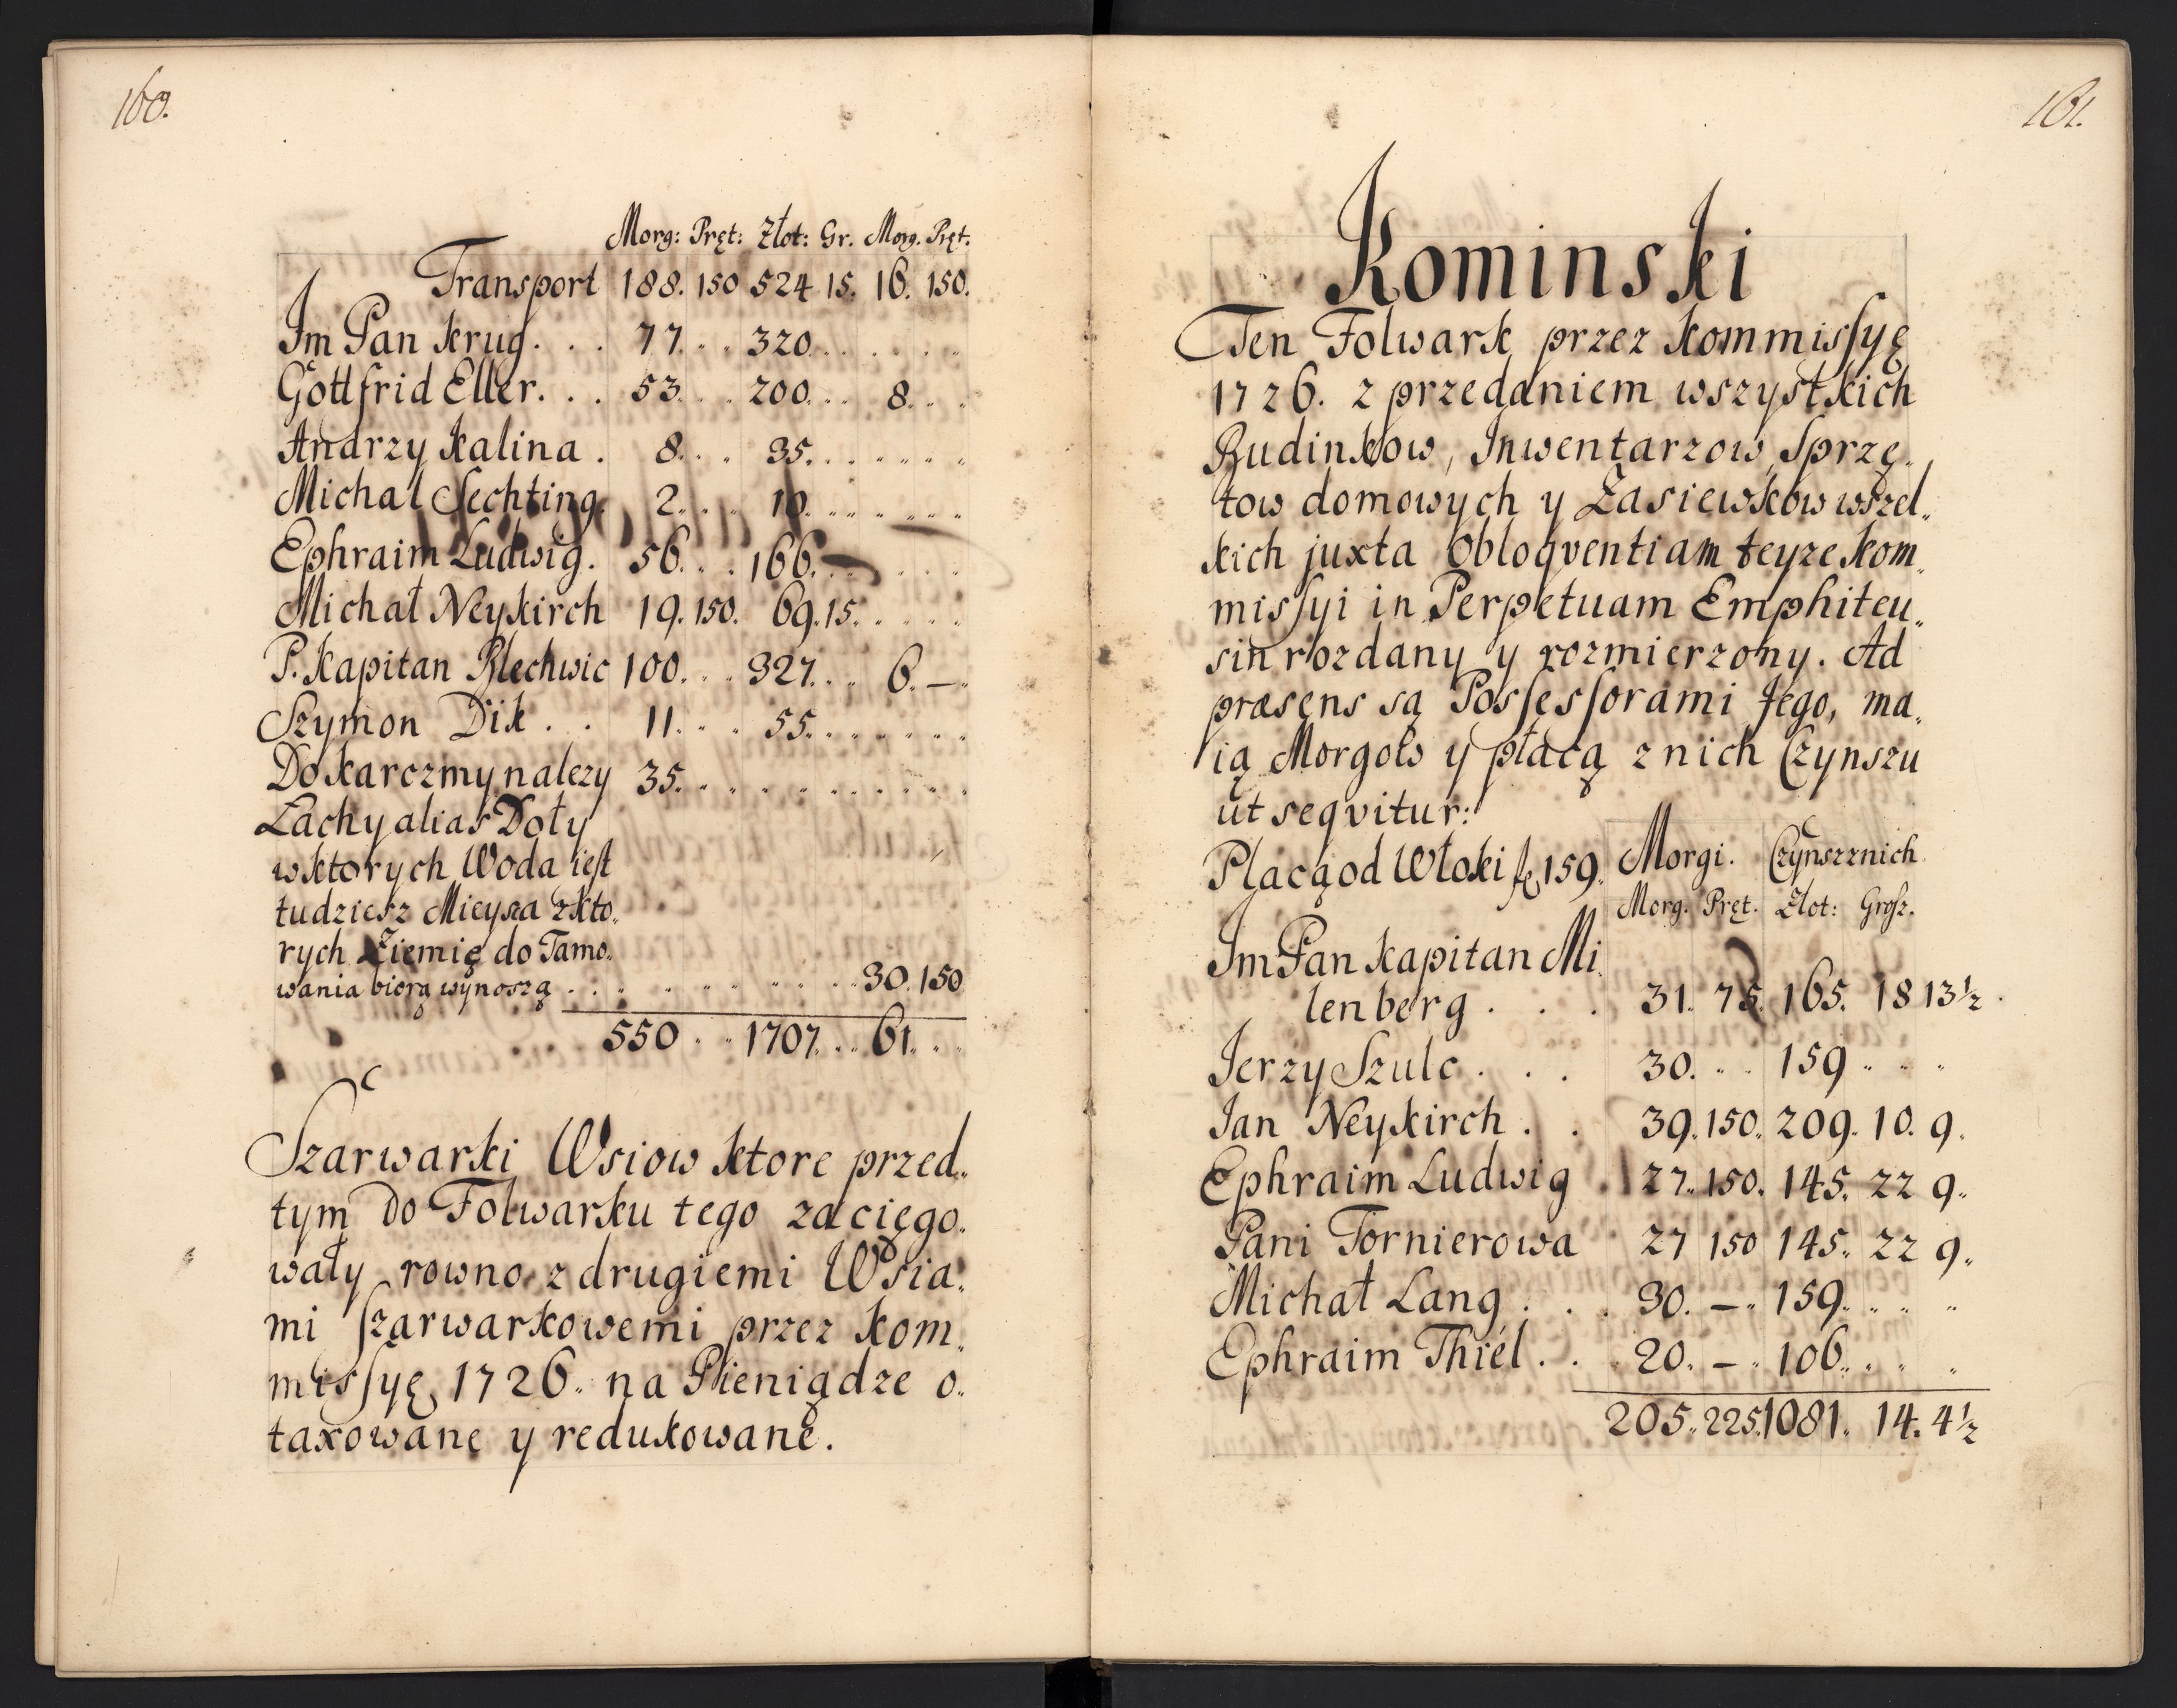 160.
Morg: Pręt: Złot: Gr. Morg. Pręt.
Transport 188. 150 524 15. 16. 150.
Jm Pan Krug . . . 77. . . 320. . . . . .
Gottfrid Eller. . . 53. . . 200. . . 8. . .
Andrzy Kalina . 8. . . 35. . . . . . .
Michał Sechting. 2. . . 10. . . . . . .
Ephraim Ludwig. 56. . . 166. . . . . .
Michał Neykirch 19. 150. 69. 15. . . . .
P. Kapitan Blechwic 100. . . 327. . . 6. —.
Szymon Dik . . 11. . . 55. . . . . . .
Do Karczmy nalezy 35. . . . . . . . . .
Łachy alias Doły
w ktorych Woda iest
tudziesz Mieysca z kto„
rych Ziemię do Tamo„
wania biorą wynoszą . . . . . . . . . 30. 150
550 . . 1707. . . 61. . .
Szarwarki Wsiow ktore przed„
tym do Folwarku tego zaciego„
wały rowno z drugiemi Wsia„
mi szarwarkowemi przez Kom„
missyę 1726. na Pieniądze o„
taxowane y redukowane.
161.
Kominski
Ten Folwark przez Kommissyę
1726. z przedaniem wszystkich
Budinkow, Inwentarzow, Sprzę„
tow domowych y Zasiewkow wszel„
kich juxta Obloqventiam teyze Kom„
missyi in Perpetuam Emphiteu„
sin rozdany y rozmierzony. Ad
præsens są Possessorami Jego, ma„
ią Morgow y płacą z nich Czynszu
ut seqvitur:
Płacą od Włoki f 159. Morgi. Czynsz z nich
Morg. Pręt. Złot: Grosz.
Jm Pan Kapitan Mi„
lenberg . . . 31. 75. 165. 18 13½.
Jerzy Szulc . . . 30. . . 159 . . .
Jan Neykirch . . 39. 150. 209. 10. 9.
Ephraim Ludwig . 27. 150. 145. 22 9.
Pani Tornierowa 27 150 145. 22 9.
Michał Lang . . . 30. —. 159. . . .
Ephraim Thiel . . 20. —. 106. . . .
205. 225. 1081. 14. 4½